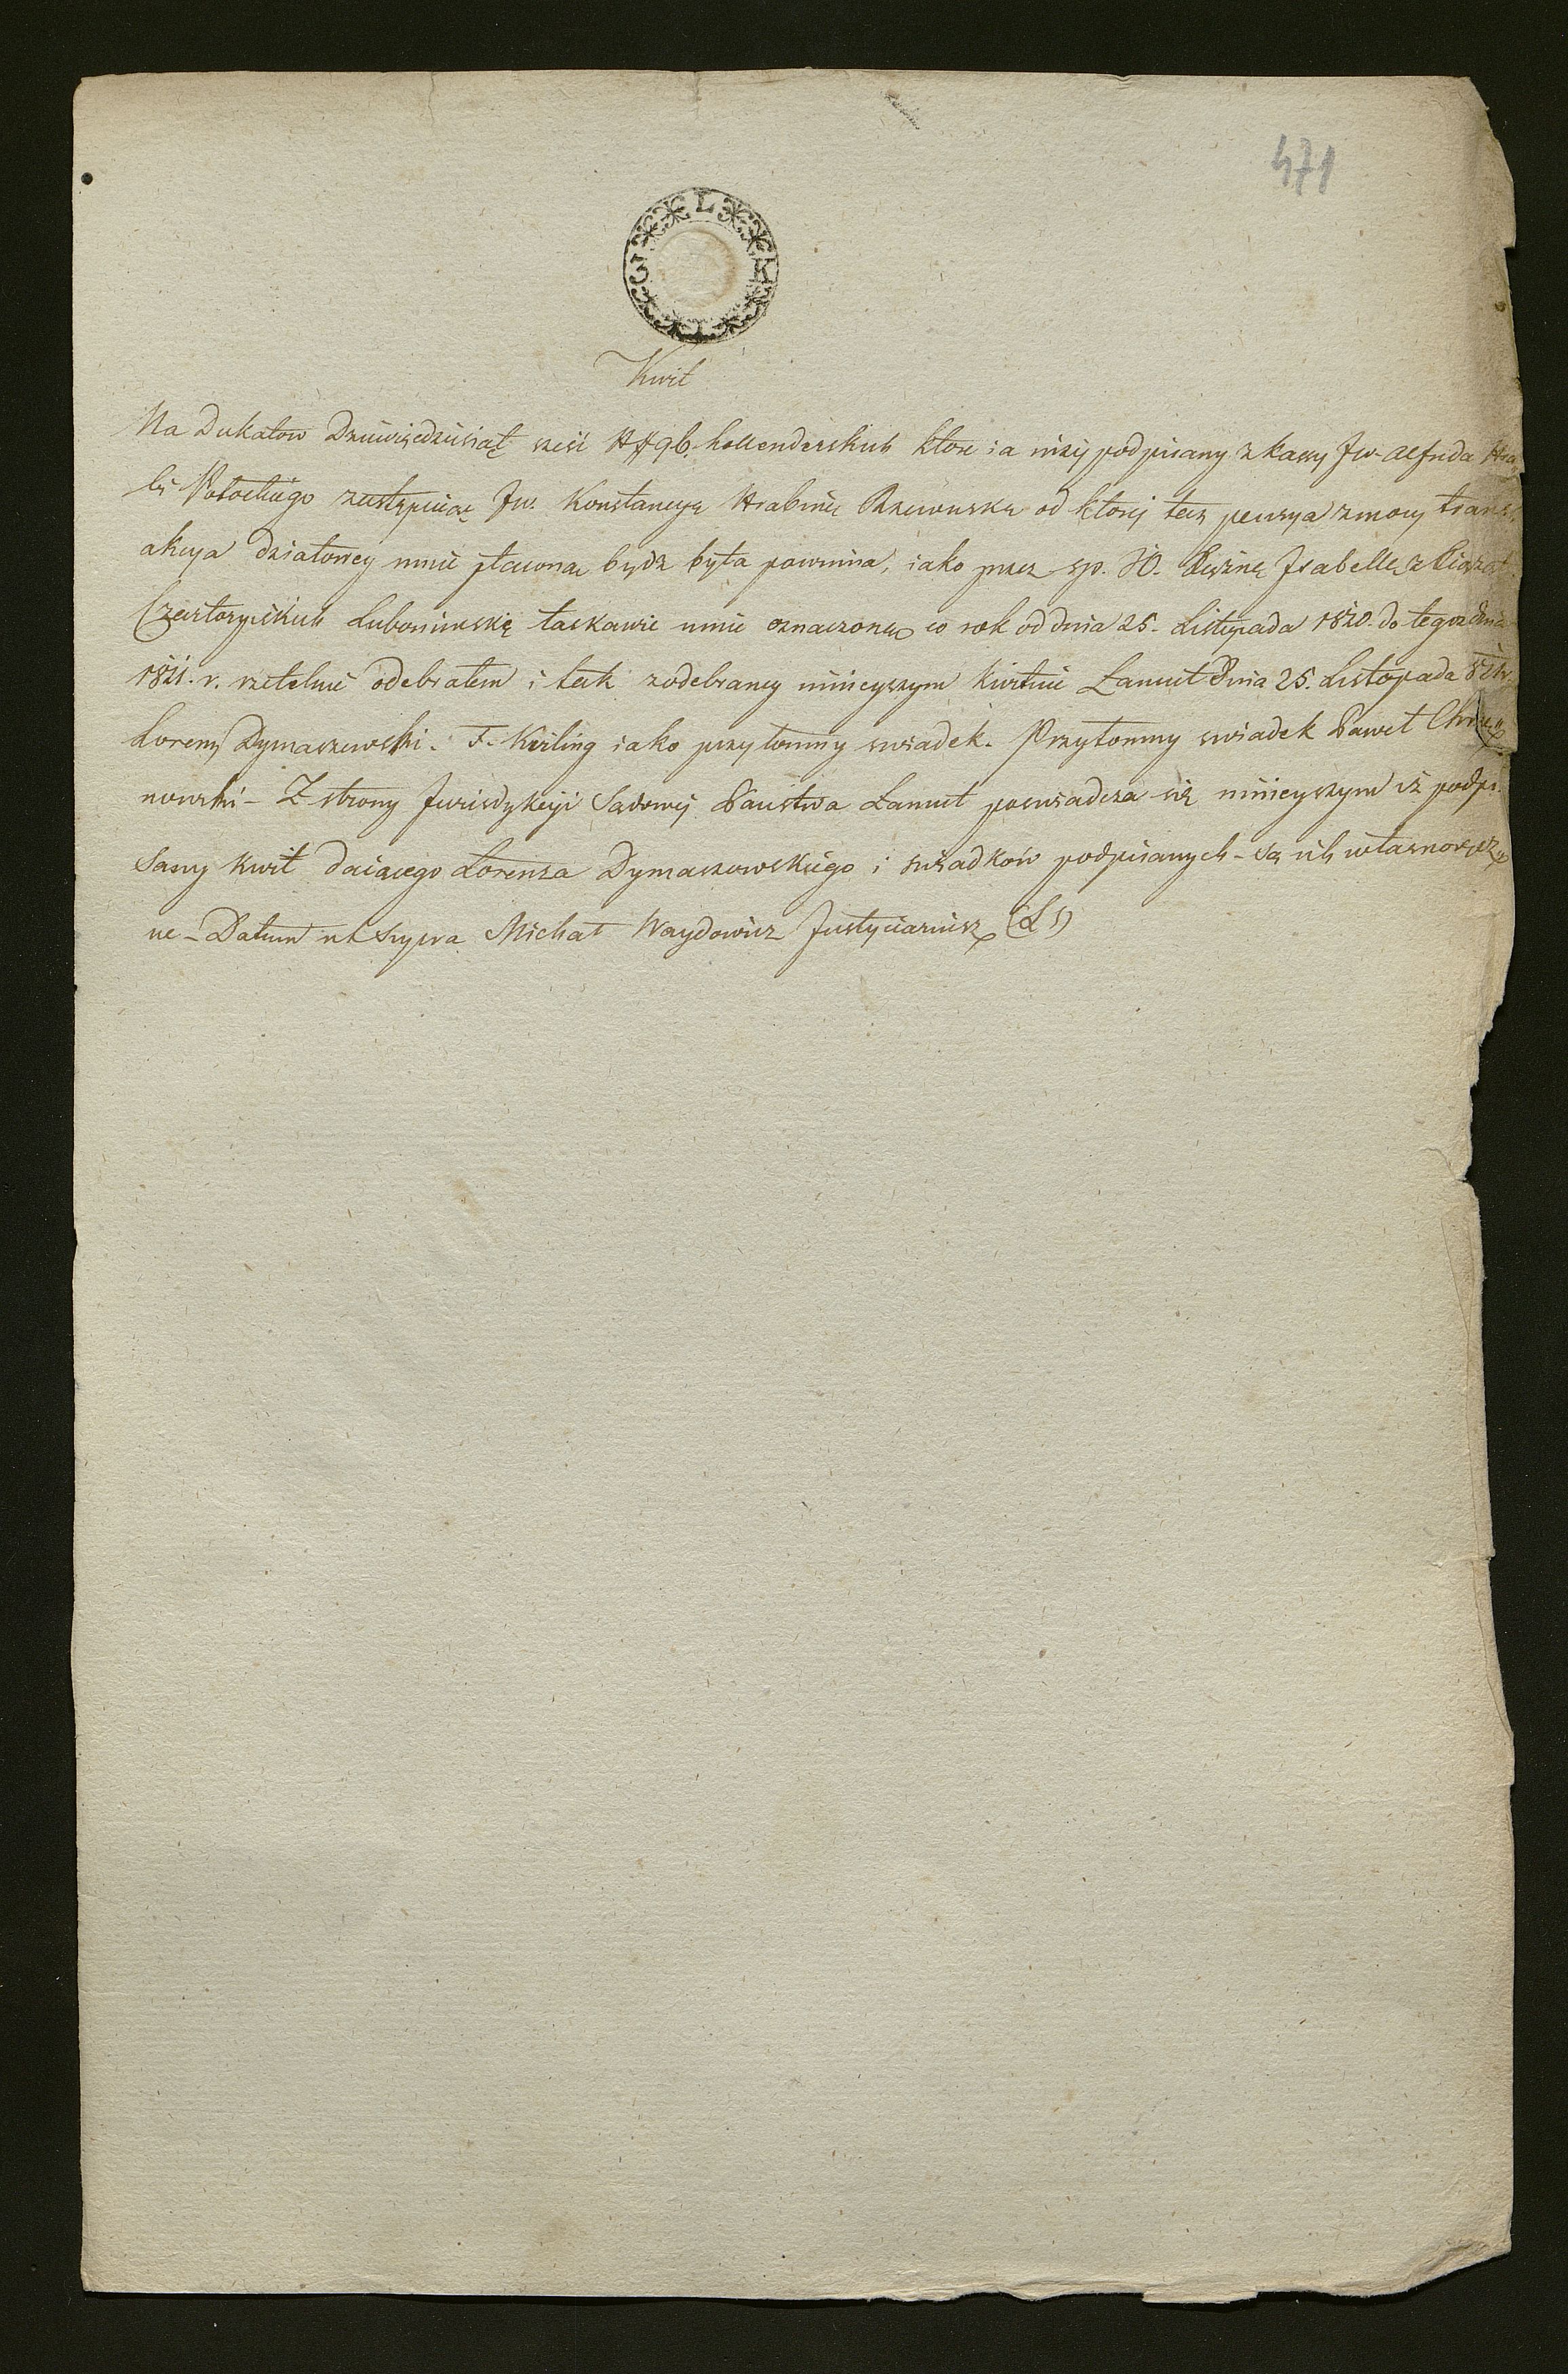 471
3 L K
Kwit
Na Dukatow Dziewiędziesiąt sześć ## 96. hollenderskich ktore ia niżej podpisany z kassy Jw. Alfreda Hra
bi Potockiego zastępuiąc Jw. Konstancyę Hrabinę Rzewuską od ktorej taż pensya z mocy trans
akcya działowey mnie płacona bydz była powinna, iako przez sp. JO. Xiężnę Izabellę z Xiążąt
Czartoryiskich Lubomirską łaskawie mnie oznaczoną co rok od dnia 25. Listopada 1820. do tegoż dnia
1821. r. rzetelnie odebrałem i tak z odebraney ninieyszym kwituię Łancut Dnia 25. Listopada 821 r.
Lorenz Dymaszewski. F. Kerling iako przytomny swiadek. Przytomny swiadek Paweł
nowski - Z strony Jurisdykcyi Sądowej Państwa Łancut poswiadcza się ninieyszym iż podpi
sany kwit daiącego Lorenza Dymaszewskiego i swiadków podpisanych - są ich własnoręcz
ne - Datum ut supra Michał Waydowicz Justyciariusz (LS)